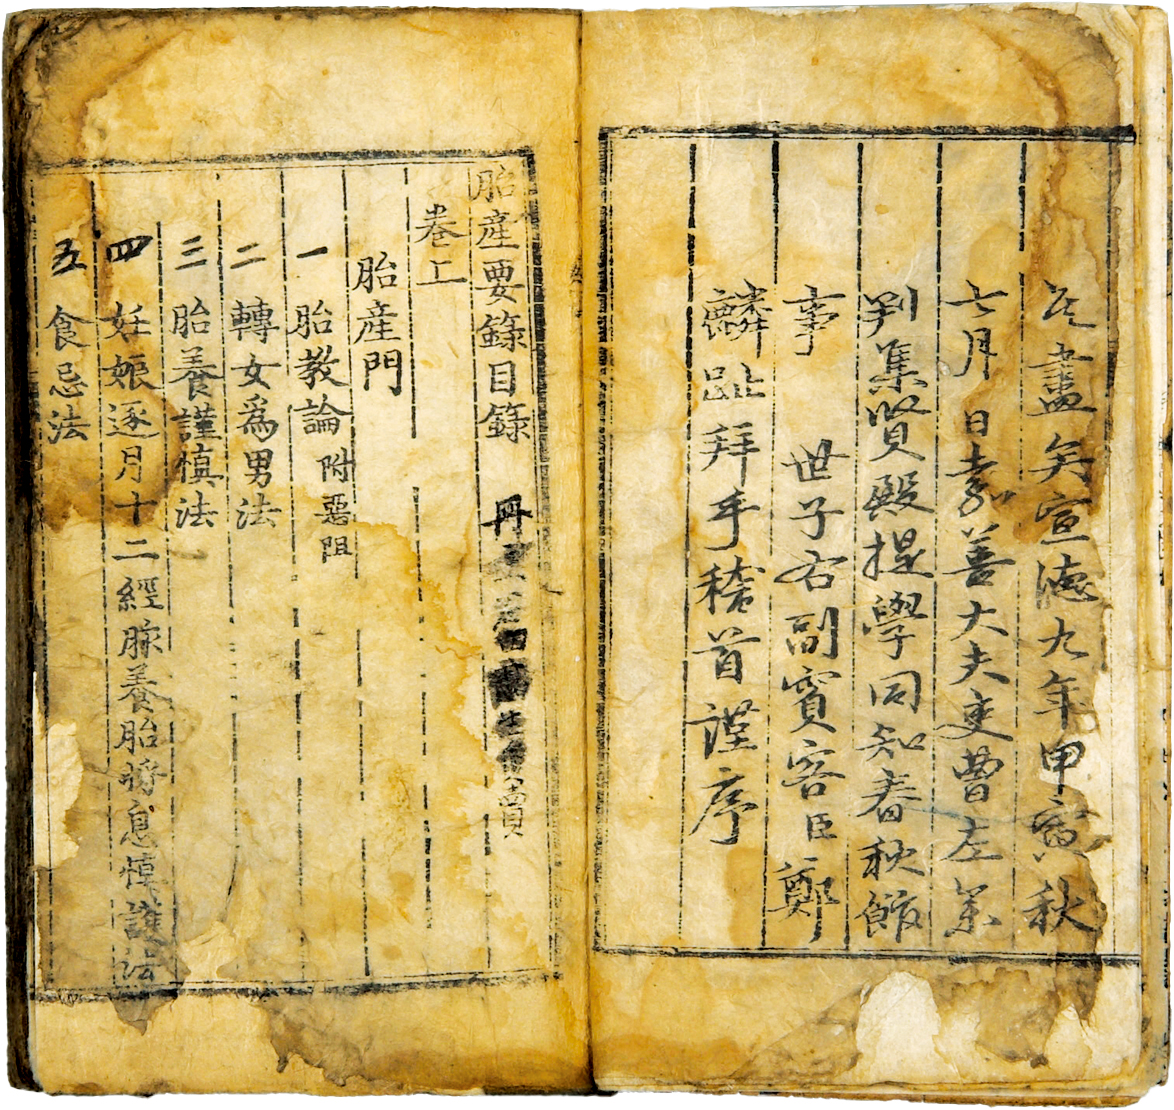 旨盡矣宣德九年甲寅秋
七月 日嘉善大夫吏曹左叅
判集賢殿提學同知春秋館
事 世子右副賓客臣鄭
麟趾拜手稽首謹序
胎産要錄目錄
卷上
胎産門
一 胎教論附惡阻
二 轉女爲男法
三 胎養謹慎法
四 妊娠逐月十二經脉養胎將息慎護法
五 食忌法